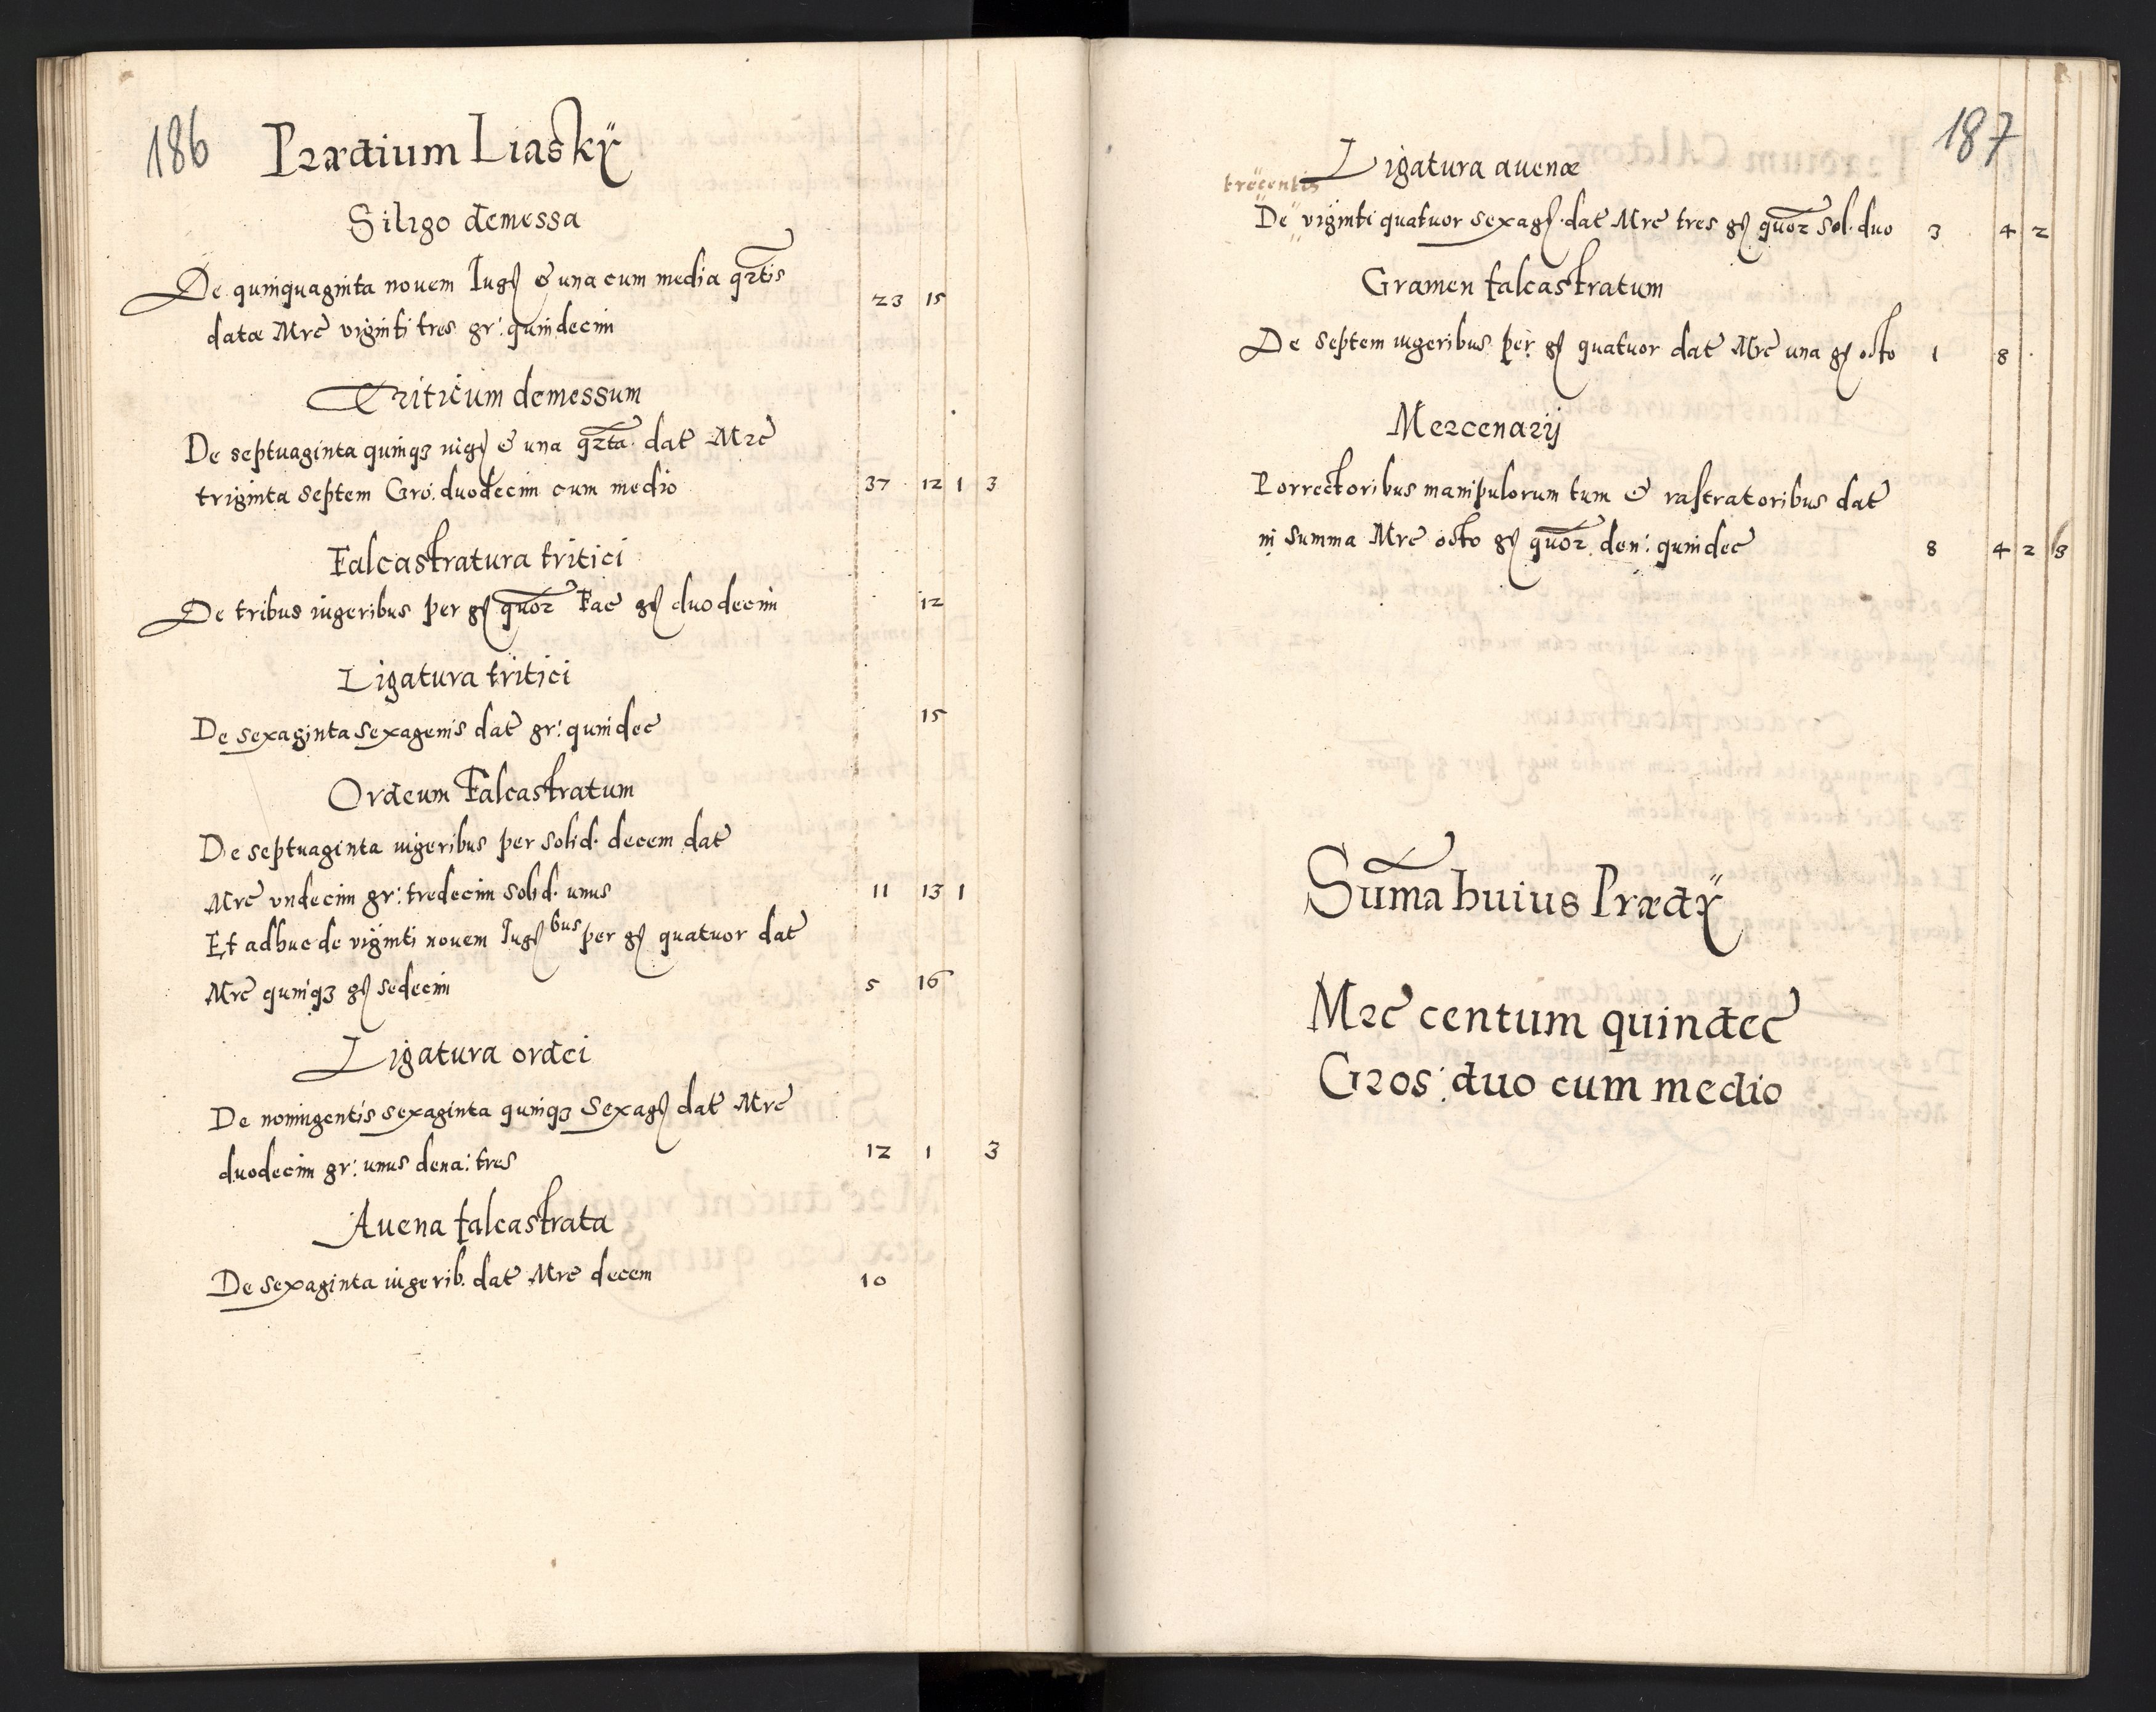 186
Prædium Liaskÿ
Siligo demessa
De quinquaginta novem Iug̃ & una cum media qrtis
datæ Mrc̃ viginti tres gr: quindecim 23 15
Triticum demessum
De septuaginta quinqꝫ iug̃ & una qrta dat̃ Mrc̃
triginta septem Gro: duodecim cum medio 37 12 1 3
Falcastratura tritici
De tribus iugeribus per g̃ quor Fac̃ g̃ duodecim 12
Ligatura tritici
De sexaginta sexagenis dat̃ gr: quindec̃ 15
Ordeum Falcastratum
De septuaginta iugeribus per solid. decem dat̃
Mrc̃ vndecim gr: tredecim solid. unus 11 13 1
Et adhuc de viginti novem Iug̃bus per g̃ quatuor dat̃
Mrc̃ quinqꝫ g̃ sedecim 5 16
Ligatura ordei
De noningentis sexaginta quinqꝫ Sexag̃ dat̃ Mrc̃
duodecim gr: unus dena: tres 12 1 3
Auena falcastrata
De sexaginta iugerib. dat̃ Mrc̃ decem 10
187
Ligatura auenæ
trecentis
De viginti quatuor sexag̃. dat̃ Mrc̃ tres g̃ quor Sol. duo 3 4 2
Gramen falcastratum
De septem iugeribus per g̃ quatuor dat̃ Mrc̃ una g̃ octo 1 8
Mercenarij
Porrectoribus manipulorum tum & rastratoribus dat̃
in summa Mrc̃ octo g̃ quor den: quindec̃ 8 4 2 3
Sum̃a huius Prædÿ
Mrc̃ centum quindec̃
Gros: duo cum medio